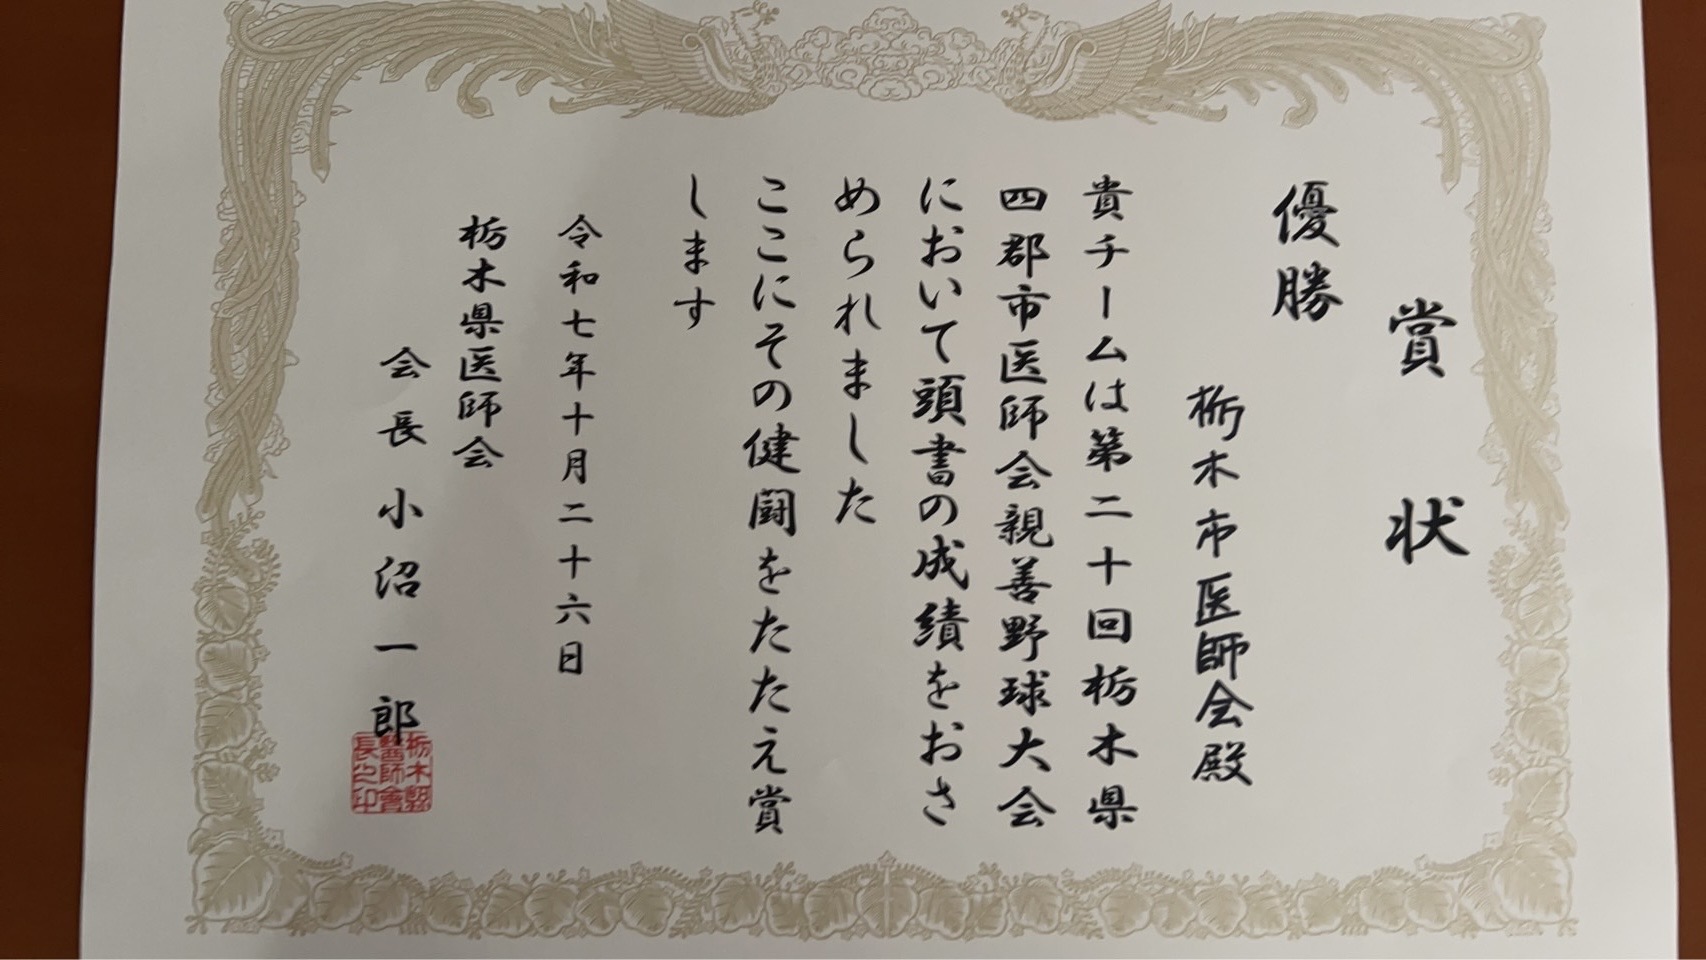 賞状
優勝
栃木市医師会殿
貴チームは第二十回栃木県
四郡市医師会親善野球大会
において頭書の成績をおさ
められました
ここにその健闘をたたえ賞
します
令和七年十月二十六日
栃木県医師会
会長 小沼一郎
栃木縣
醫師會
長之印